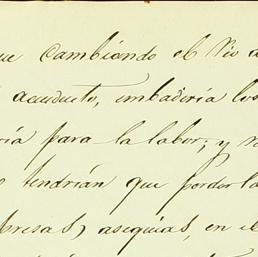 que cambiando el Rio d
acueducto, embadiría los
ría para la labor; y s
tendrían que perder la
presas, asequias, en el